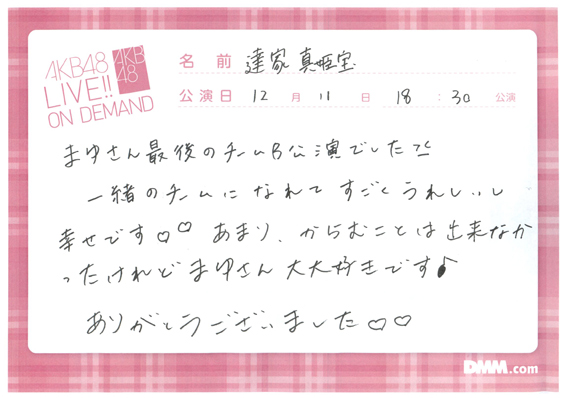 AKB48
LIVE!!
ON DEMAND
AKB
48
名前 達家 真姫宝
公演日 12月11日 18:30 公演
まゆさん最後のチームB公演でした
一緒のチームになれてすごくうれしいし
幸せです♡♡ あまり、からむことは出来なか
ったけれどまゆさん大大好きです♪
ありがとうございました♡♡
DMM.com